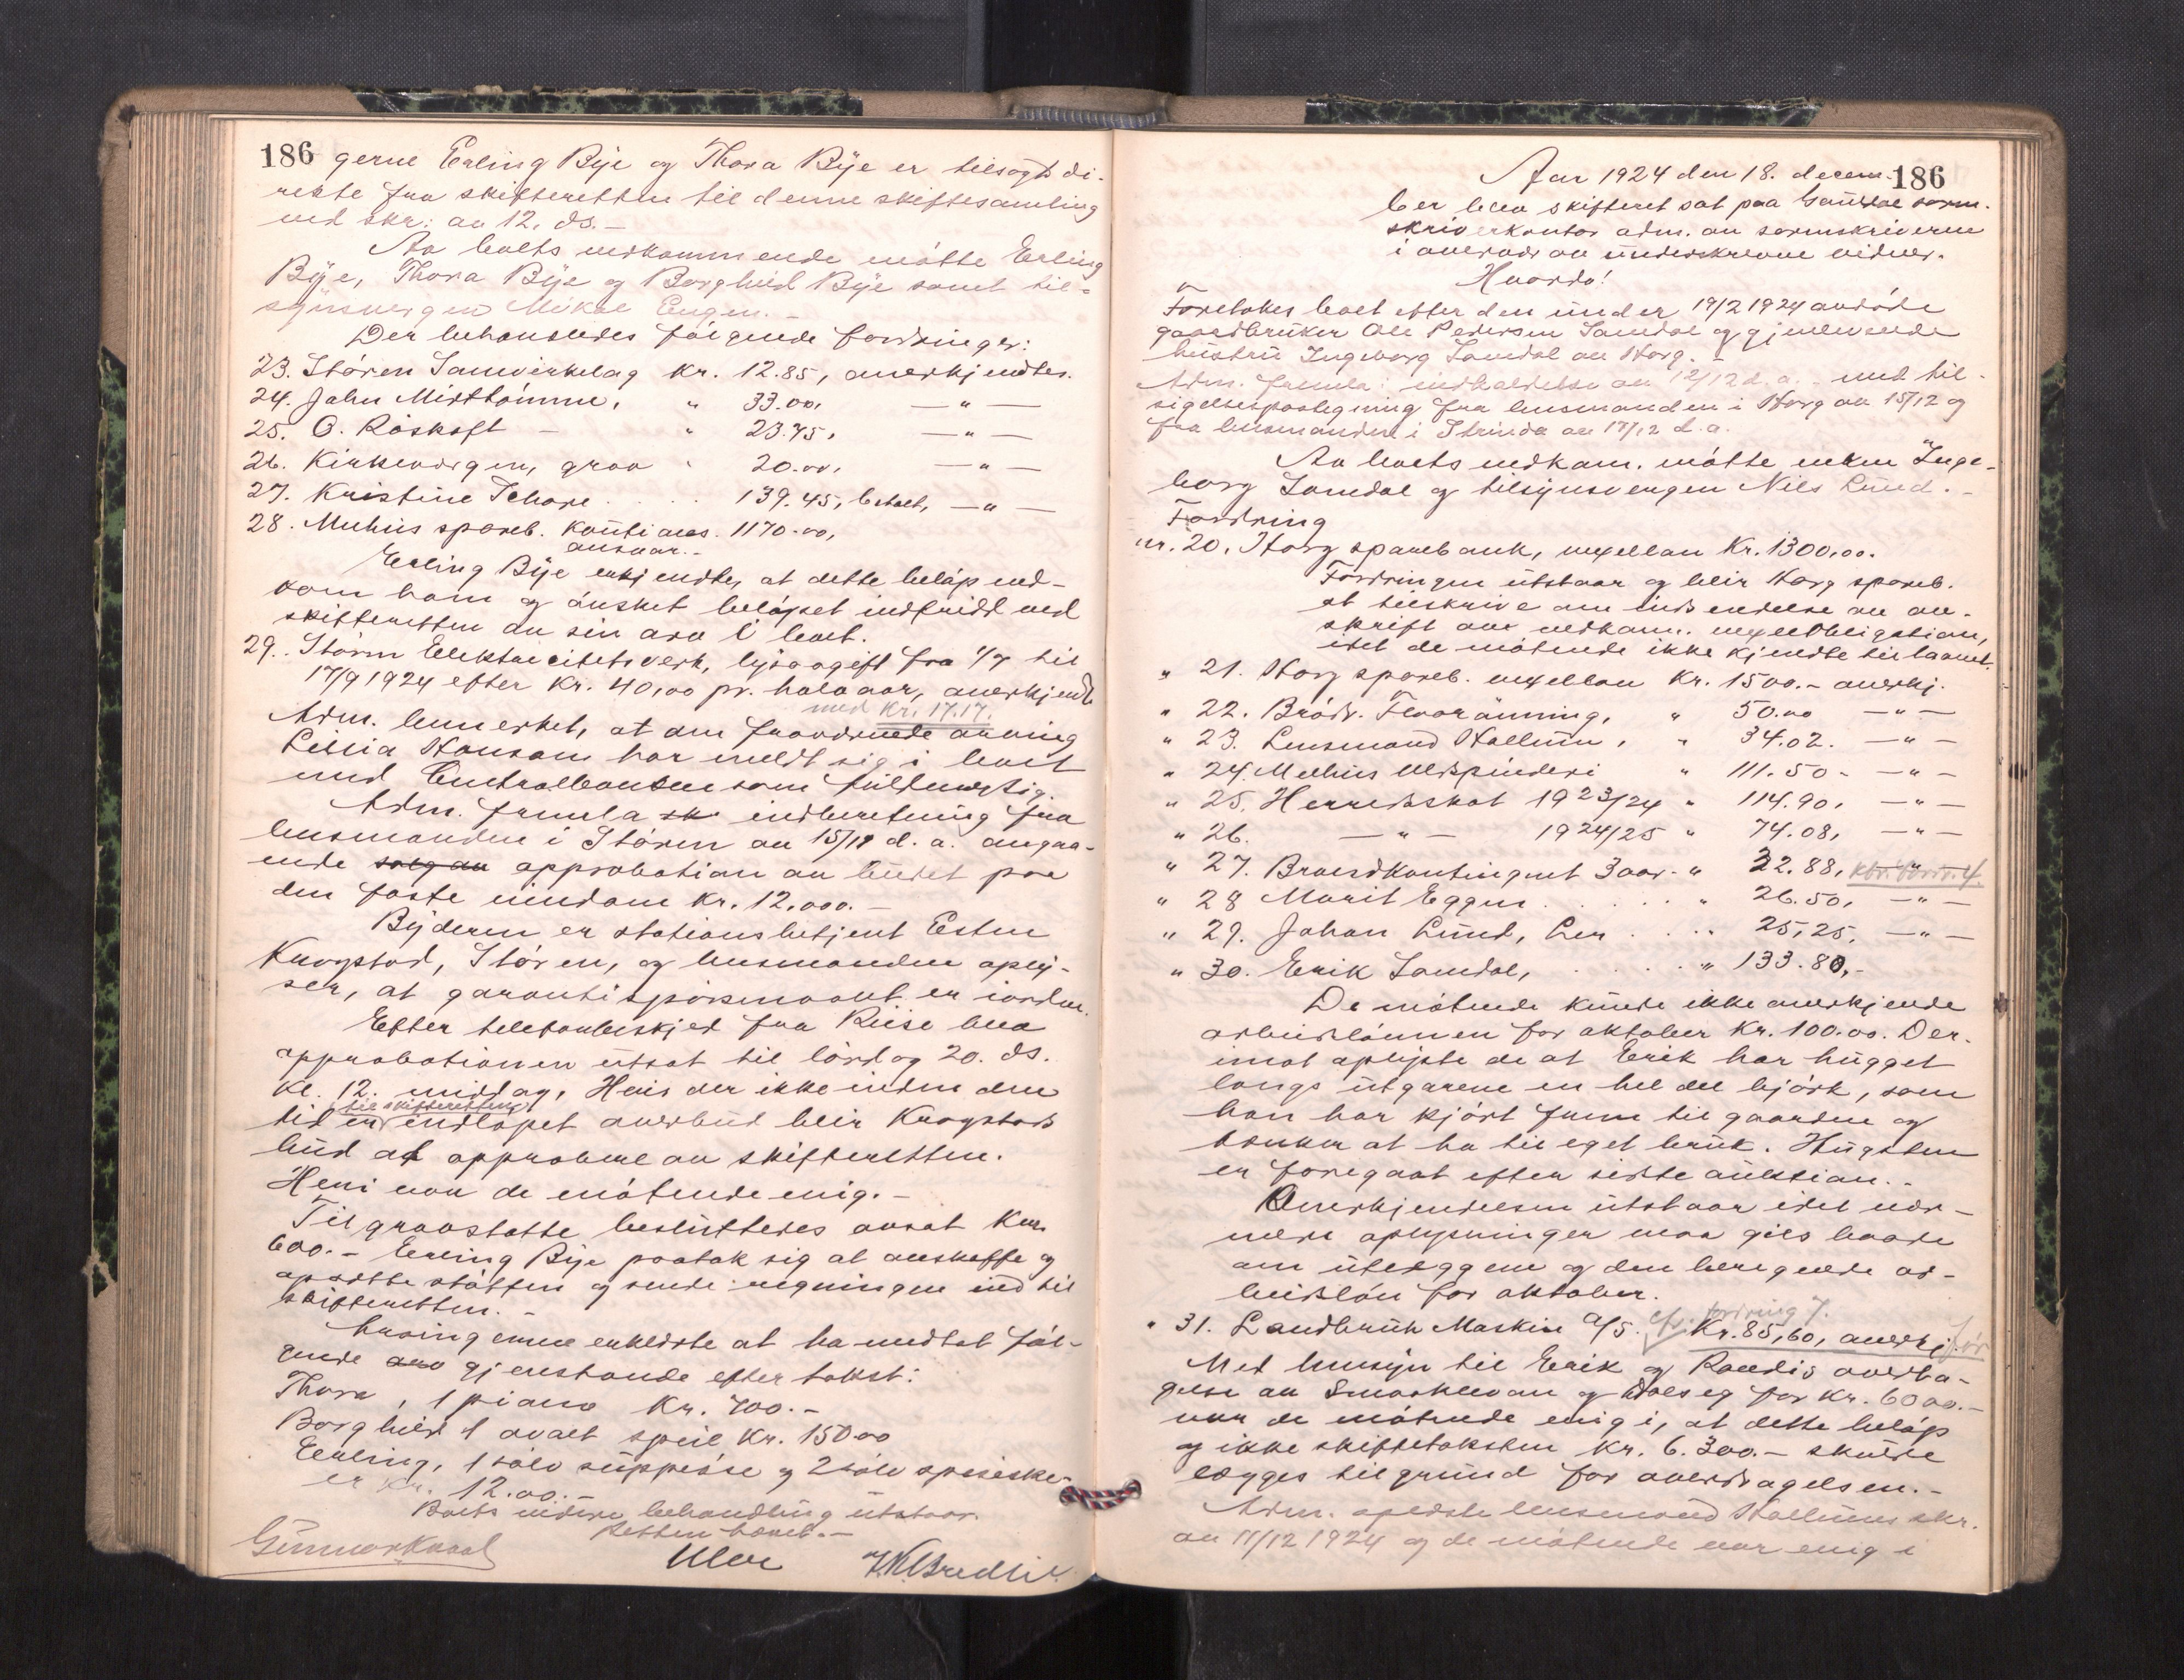 186 gerne Erling Bye og Thora Bye er tilsagt di-
rekte fra skifteretten til denne skiftesamling
ved skr. av 12. ds. -
Av boets vedkommende møtte Erling
Bye, Thora Bye og Borghild Bye samt til-
synsvergen Mikal Eugen. -
Der behandledes følgende fordringer:
23. Støren Samvirkelag kr. 12.85, anerkjendtes.
24. John Midttømme, " 33.00, — " —
25. O. Røskaft - " 23.75, — " —
26. Kirkevergen, grav " 20.00, — " —
27. Kristine Schare . . . . 139.45, betalt, — " —
28. Melhus spareb. kautions 1170.00,
ansvar. -
Erling Bye erkjendte, at dette beløp ved-
kom ham og ønsket beløpet indfridd ved
skifteretten av sin arv i boet.
29. Støren Elektricitetsverk, lysavgift fra 1/7 til
17/9 1924 efter kr. 40,00 pr. halvaar, anerkjendt
med kr. 17.17.
Adm. bemerket, at den fraværende arving
Lillia Hanson har meldt sig i boet
med Centralbanken som fuldmægtig.
Adm. fremla sk indberetning fra
lensmanden i Støren av 15/12 d. a. angaa-
ende salg av approbation av budet paa
den faste eiendom kr. 12.000. -
Byderen er stationsbetjent Esten
Krogstad, Støren, og lensmanden oply-
ser, at garantispørsmaalet er iorden.
Efter telefonbeskjed fra Riise blev
approbationen utsat til lørdag 20. ds.
kl. 12. middag. Hvis der ikke inden den
til skifteretten
tid er indløpet overbud blir Krogstads
bud at approbere av skifteretten.
Heri var de møtende enig. -
Til gravstøtte besluttedes avsat kr.
600. - Erling Bye paatok sig at anskaffe og
opsætte støtten og sende regningen ind til
skifteretten. -
Arvingerne erklærte at ha mottat føl-
gende arv gjenstande efter takst:
Thora, 1 piano kr. 700. -
Borghild 1 ovalt speil kr. 15000
Erling, 1 sølv suppeøse og 2 sølv spiseske-
er kr. 12.00. -
Boets videre behandling utstaar.
Retten hævet. -
Gunnar Kvaal Uler J.K. Bredli

Aar 1924 den 18. decem- 186
ber blev skifteret sat paa Gauldal soren-
skriverkontor adm. av sorenskriveren
i overvær av underskrevne vidner.
Hvorda!
Foretokes boet efter den under 19/2 1924 avdøde
gaardbruker Ole Pedersen Samdal og gjenlevende
hustru Ingeborg Samdal av Horg. -
Adm. fremla: indkaldelse av 12/12 d. a. - med til-
sigelsespaategning fra lensmanden i Horg av 15/12 og
fra lensmanden i Strinda av 17/12 d. a.
Av boets vedkom. møtte enken Inge-
borg Samdal og tilsynsvergen Nils Lund. -
Fordring
nr. 20. Horg sparebank, vexellaan kr. 1300,00.
Fordringen utstaar og blir Horg spareb.
at tilskrive om indsendelse av av-
skrift av vedkom. vexelobligation,
idet de møtende ikke kjendte til laanet.
" 21. Horg spareb. vexellaan kr. 1500. - anerkj.
" 22. Brødr. Flaarønning, " 50.00 — " —
" 23. Lensmand Hallum, " 34.02. — " —
" 24. Melhus Uldspinderi " 111.50 - — " —
" 25. Herredskat 1923/24 " 114.90, — " —
" 26. — " — 1924/25 " 74.08, — " —
" 27. Brandkontingent 3 aar - " 22.88,
" 28 Marit Eggen . . . . . " 26.50, — " —
" 29. Johan Lund, Ler . . . . " 25,25, — " —
" 30. Erik Samdal, . . . . . " 133.80, -
De møtende kunde ikke anerkjende
arbeidslønnen for oktober kr. 100.00. Der-
imot oplyste de at Erik har hugget
langs utgarene en hel del bjørk, som
han har kjørt frem til gaarden og
tænker at ha til eget bruk. Hugsten
er foregaat efter sidste auktion. -
Anerkjendelsen utstaar idet nær-
mere oplysninger maa gies baade
om utlæggene og den beregnede ar-
beidsløn for oktober.
" 31. Landbruk Maskin A/S. cfr. fordring 7. kr. 85,60, anerkj. før
Med hensyn til Erik og Randis overta-
gelse av Smaakleivan og Dalseg for kr. 6000. -
var de møtende enig i, at dette beløp
og ikke skiftetaksten kr. 6.300. - skulde
lægges til grund for overdragelsen. -
Adm. oplæste lensmand Hallums skr.
av 11/12 1924 og de møtende var enig i